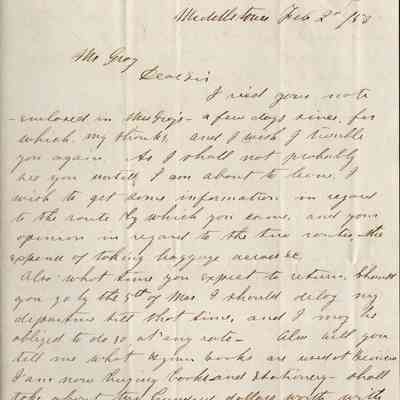 Middletown Feb 2nd /58
Mr Gray
Dear Sir
I rec'd your note
enclosed in Mrs Gray's - a few days since, for
which my thanks, and I wish I trouble
you again. As I shall not probably
see you untill I am about to leave. I
wish to get some information in regard
to the route by which you came, and your
opinion in regard to the two routes, the
expense of taking baggage across &c,
Also what time you expect to return. Should
you go by the 5th of Mar. I should delay my
departure till that time, and I may be
obliged to do so at any rate - Also will you
tell me what books are used at
I am now buying books and stationery - shall
take about hundred dollars worth with